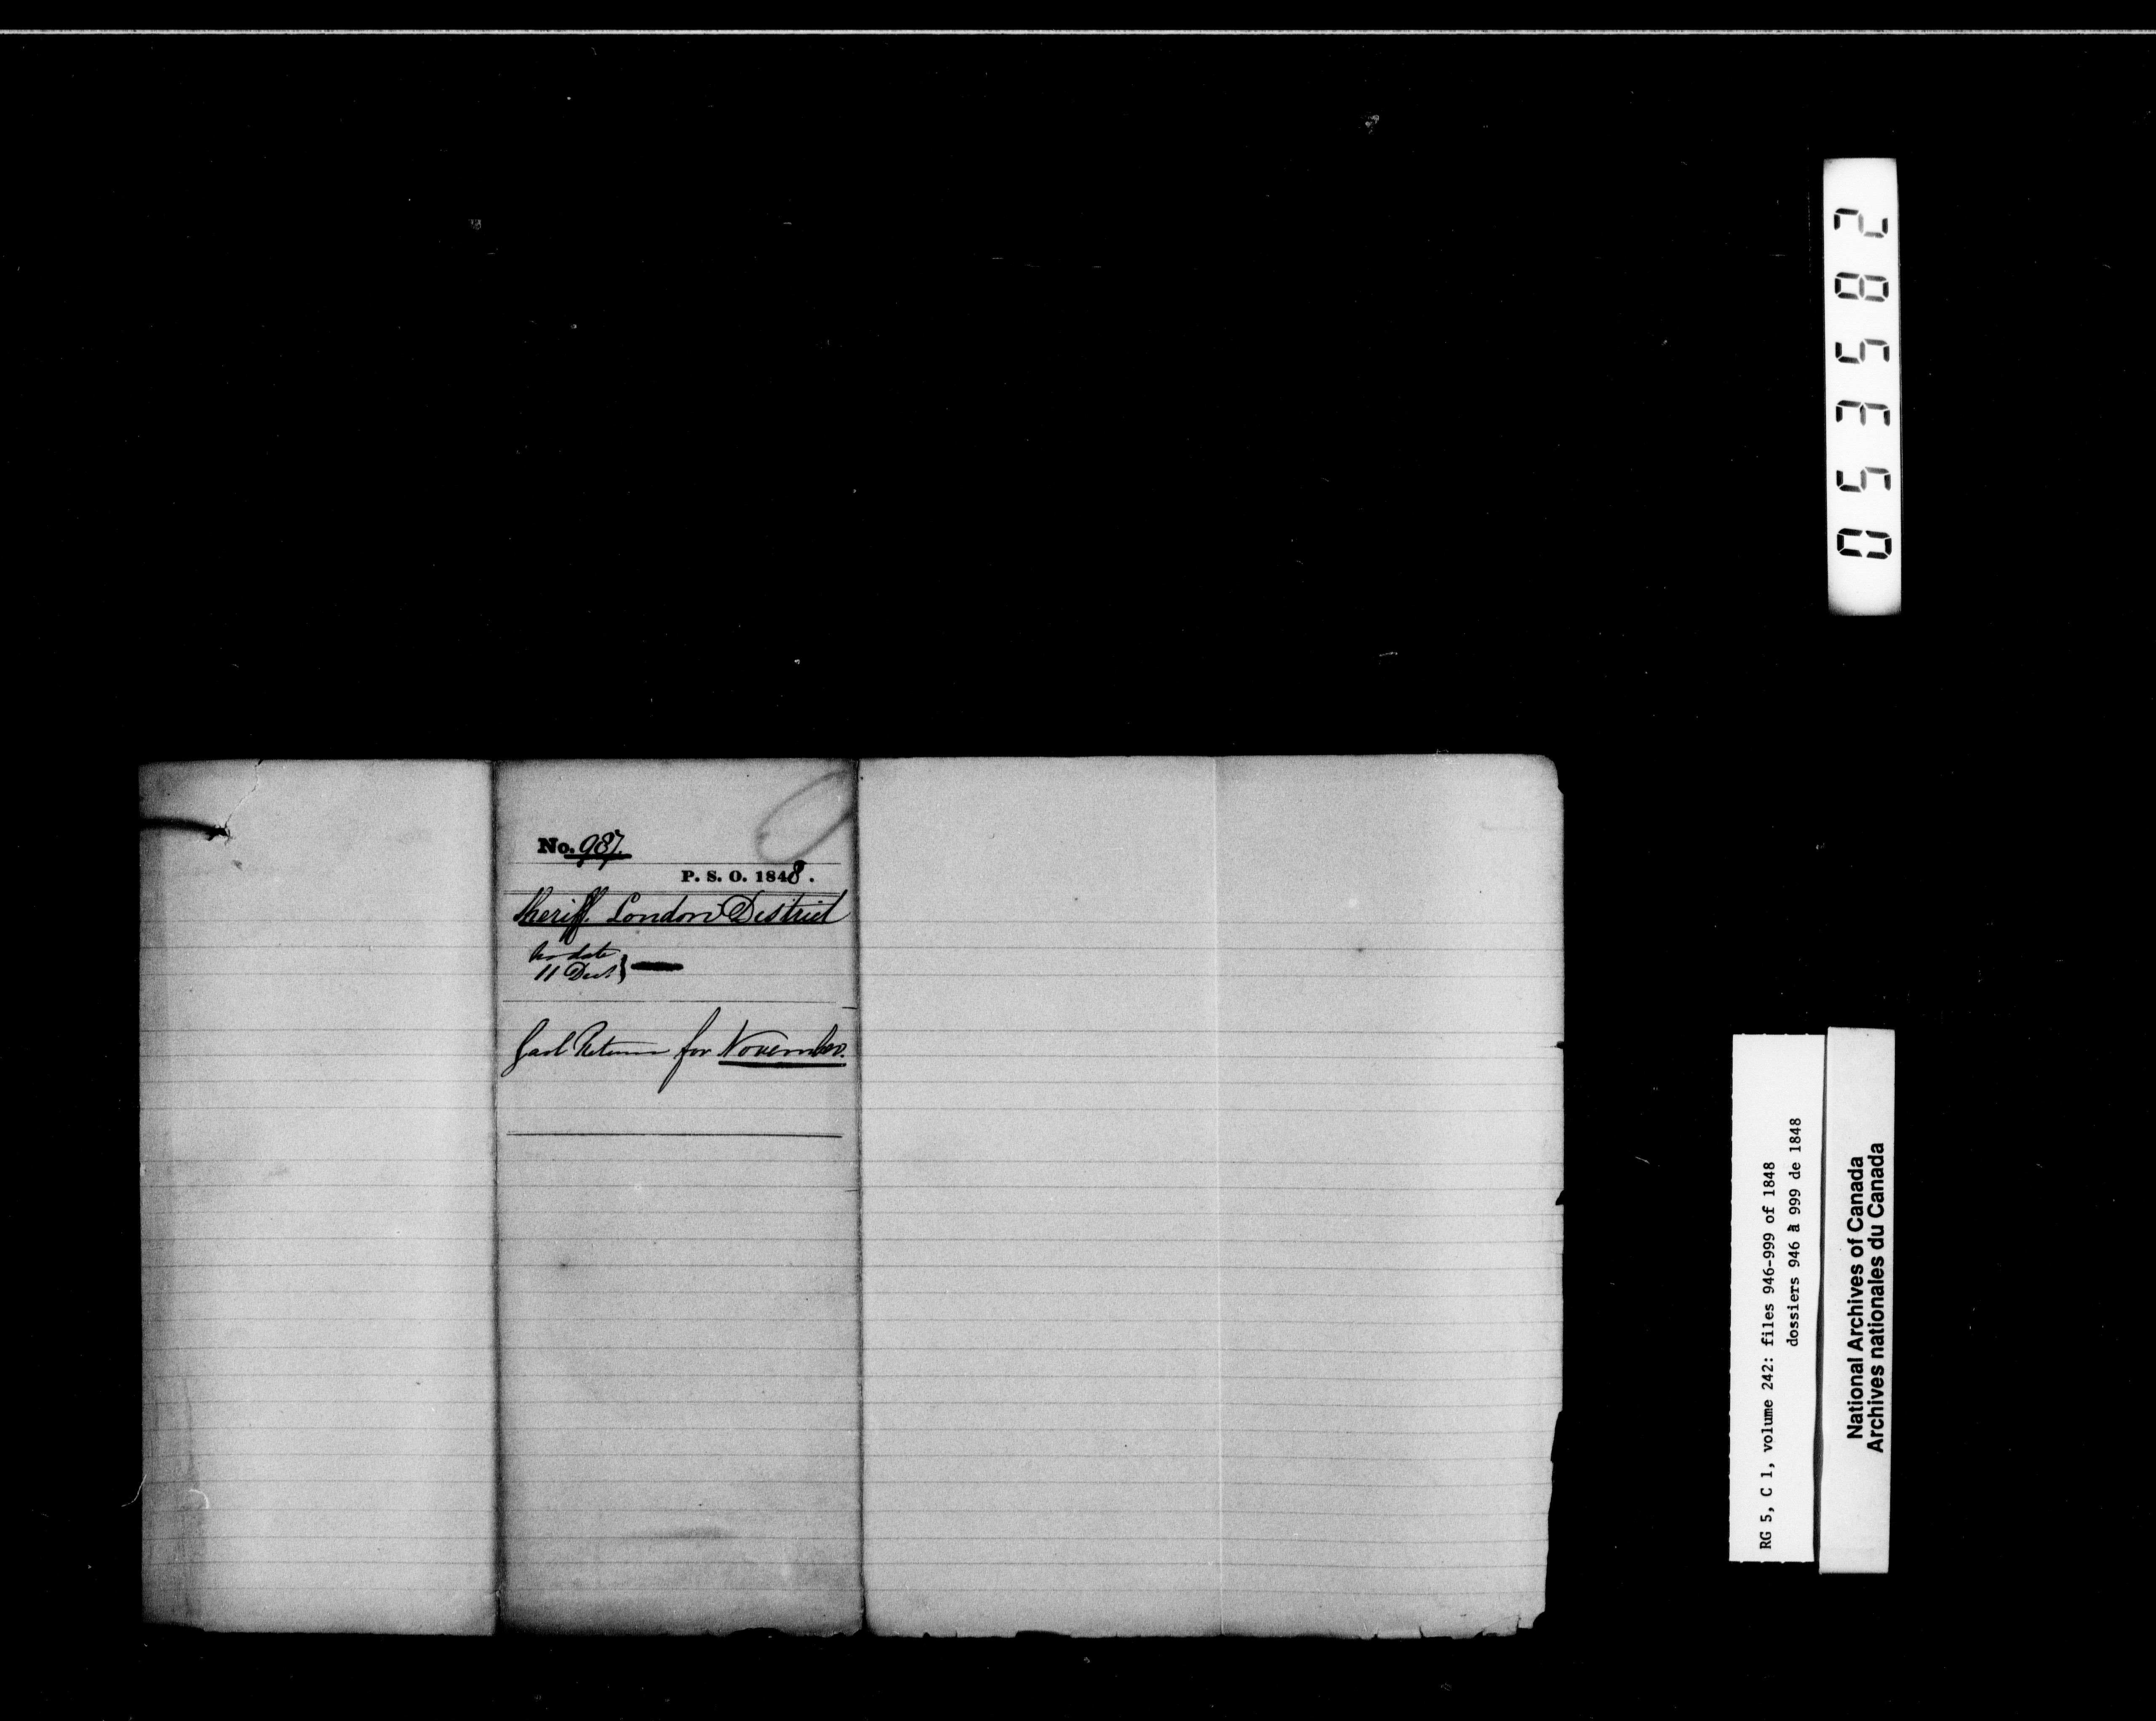 No. 987.
P. S. O. 1848.
Sheriff London District
no date
11 Dect
Gaol Return for November.
053582
RG 5, C 1, volume 242: files 946-999 of 1848
dossiers 946 à 999 de 1848
National Archives of Canada
Archives nationales du Canada